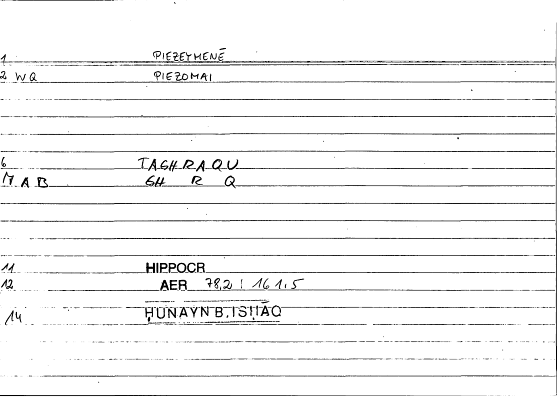 1 PIEZEYMENĒ
2 WQ PIEZOMAI
6 TAGHRAQU
7 AB GH R Q
11 HIPPOCR
12 AER 78,2 : 161.5
14 ḤUNAYN B. ISḤĀQ